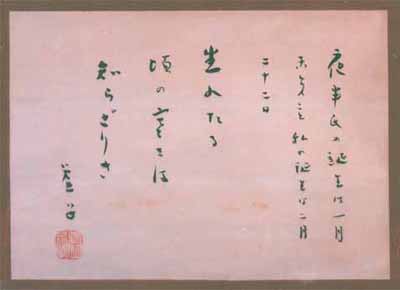 夜半氏の誕生は一月
私の誕生は二月
二十二日
生れたる
頃の寒さは
知らざりき
虚子